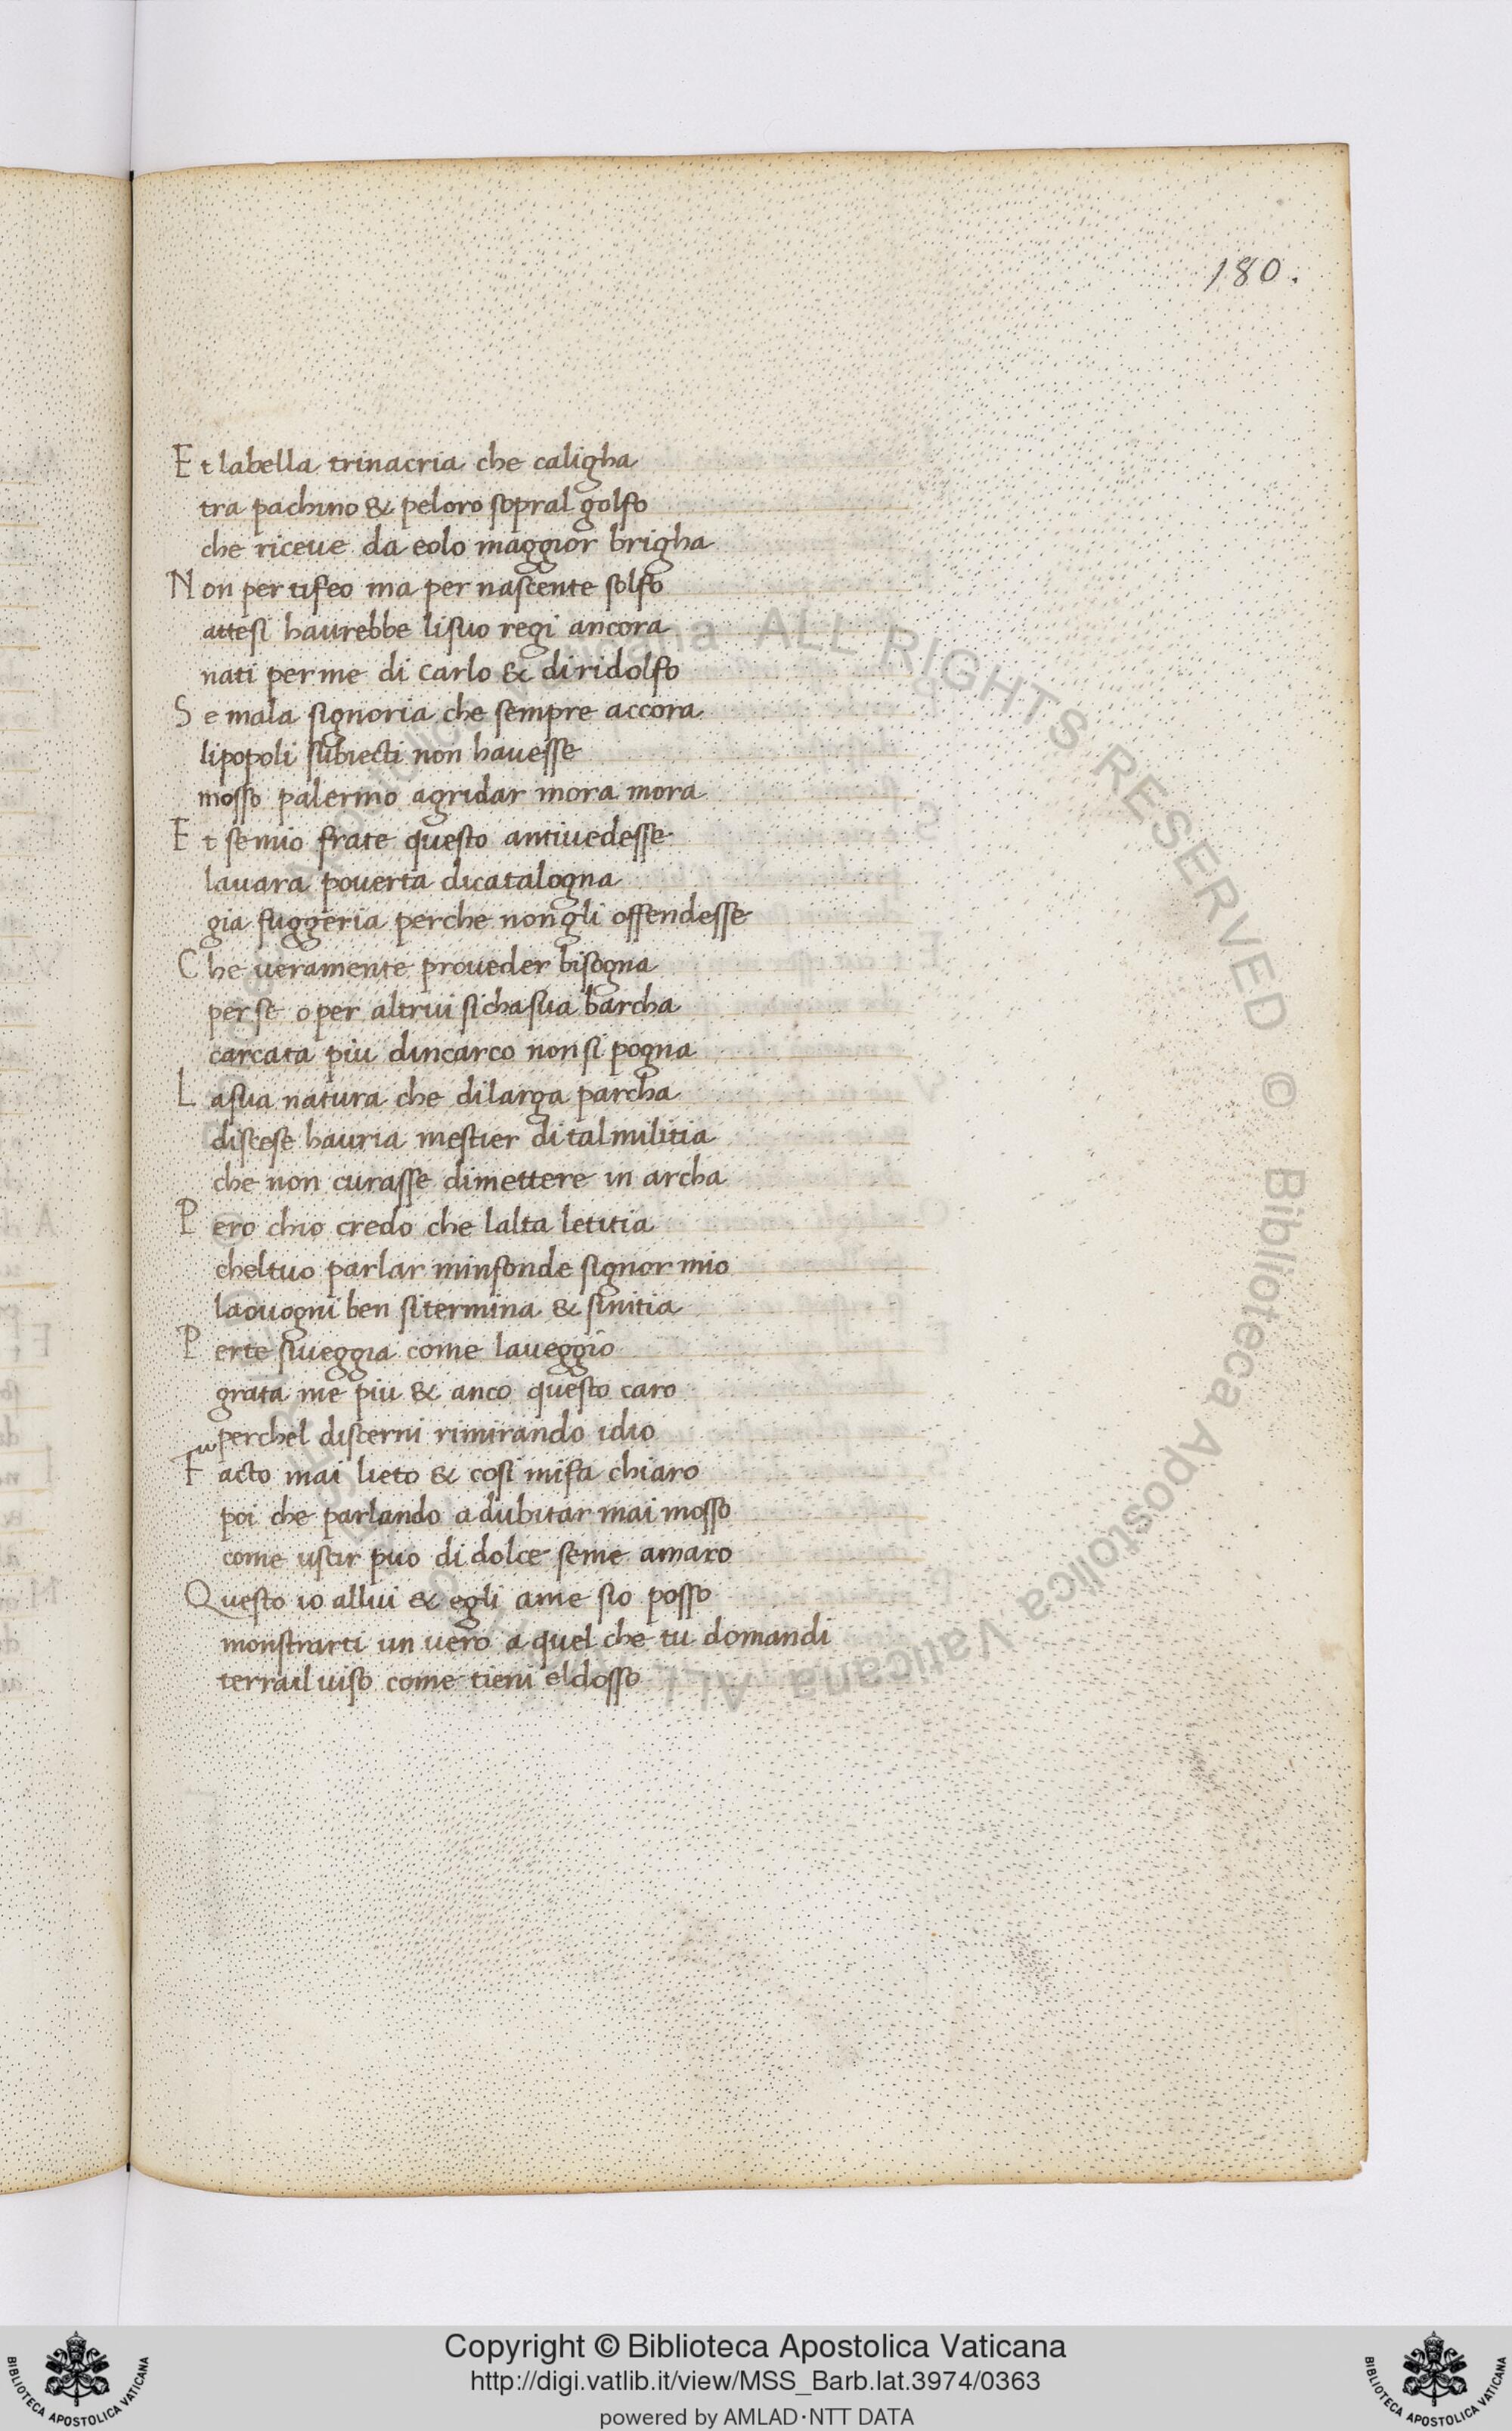 180.
Et labella trinacria che caligha
tra pachino & peloro sopral golfo
che riceue da eolo maggior brigha
Non per tifeo ma per nascente solfo
attesi haurebbe lisuo regi ancora
nati per me di carlo & di ridolfo
Se mala signoria che sempre accora
lipopoli subiecti non hauesse
mosso palermo agridar mora mora
Et semio frate questo antiuedesse
lauara pouerta dicatalogna
gia fuggeria perche non gli offendesse
Che ueramente proueder bisogna
per se o per altrui sichasua barcha
carcata piu dincarco non si pogna
Lasua natura che dilarga parcha
discese hauria mestier di tal militia
che non curasse dimettere in archa
Pero chio credo che lalta letitia
cheltuo parlar minfonde signor mio
laouogni ben sitermina & sinitia
Perte siueggia come laueggio
grata me piu & anco questo caro
perchel discerni rimirando idio
Facto mai lieto & cosi mifa chiaro
poi che parlando a dubitar mai mosso
come uscir puo di dolce seme amaro
Questo io allui & egli ame sio posso
monstrarti un uero a quel che tu domandi
terrail uiso come tieni eldosso
Copyright © Biblioteca Apostolica Vaticana
http://digi.vatlib.it/view/MSS_Barb.lat.3974/0363
powered by AMLAD·NTT DATA
BIBLIOTECA APOSTOLICA VATICANA
BIBLIOTECA APOSTOLICA VATICANA